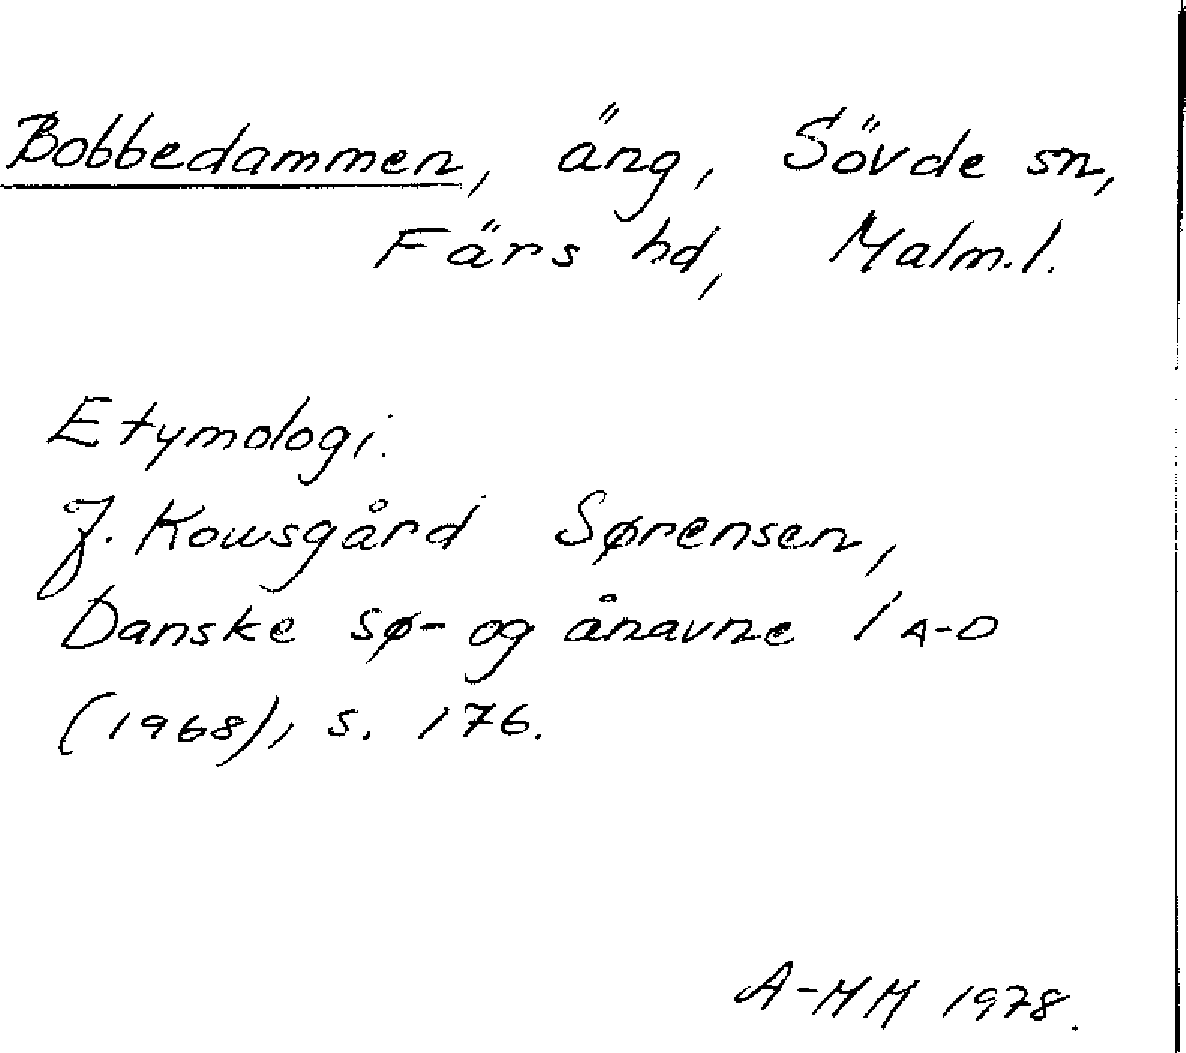 Bobbedammen, äng, Sövde sn,
Färs hd, Malm.l.
Etymologi.
J. Kowsgård Sørensen,
Danske sø- og ånavne 1 A-D
(1968), s. 176.
A-MM 1978.